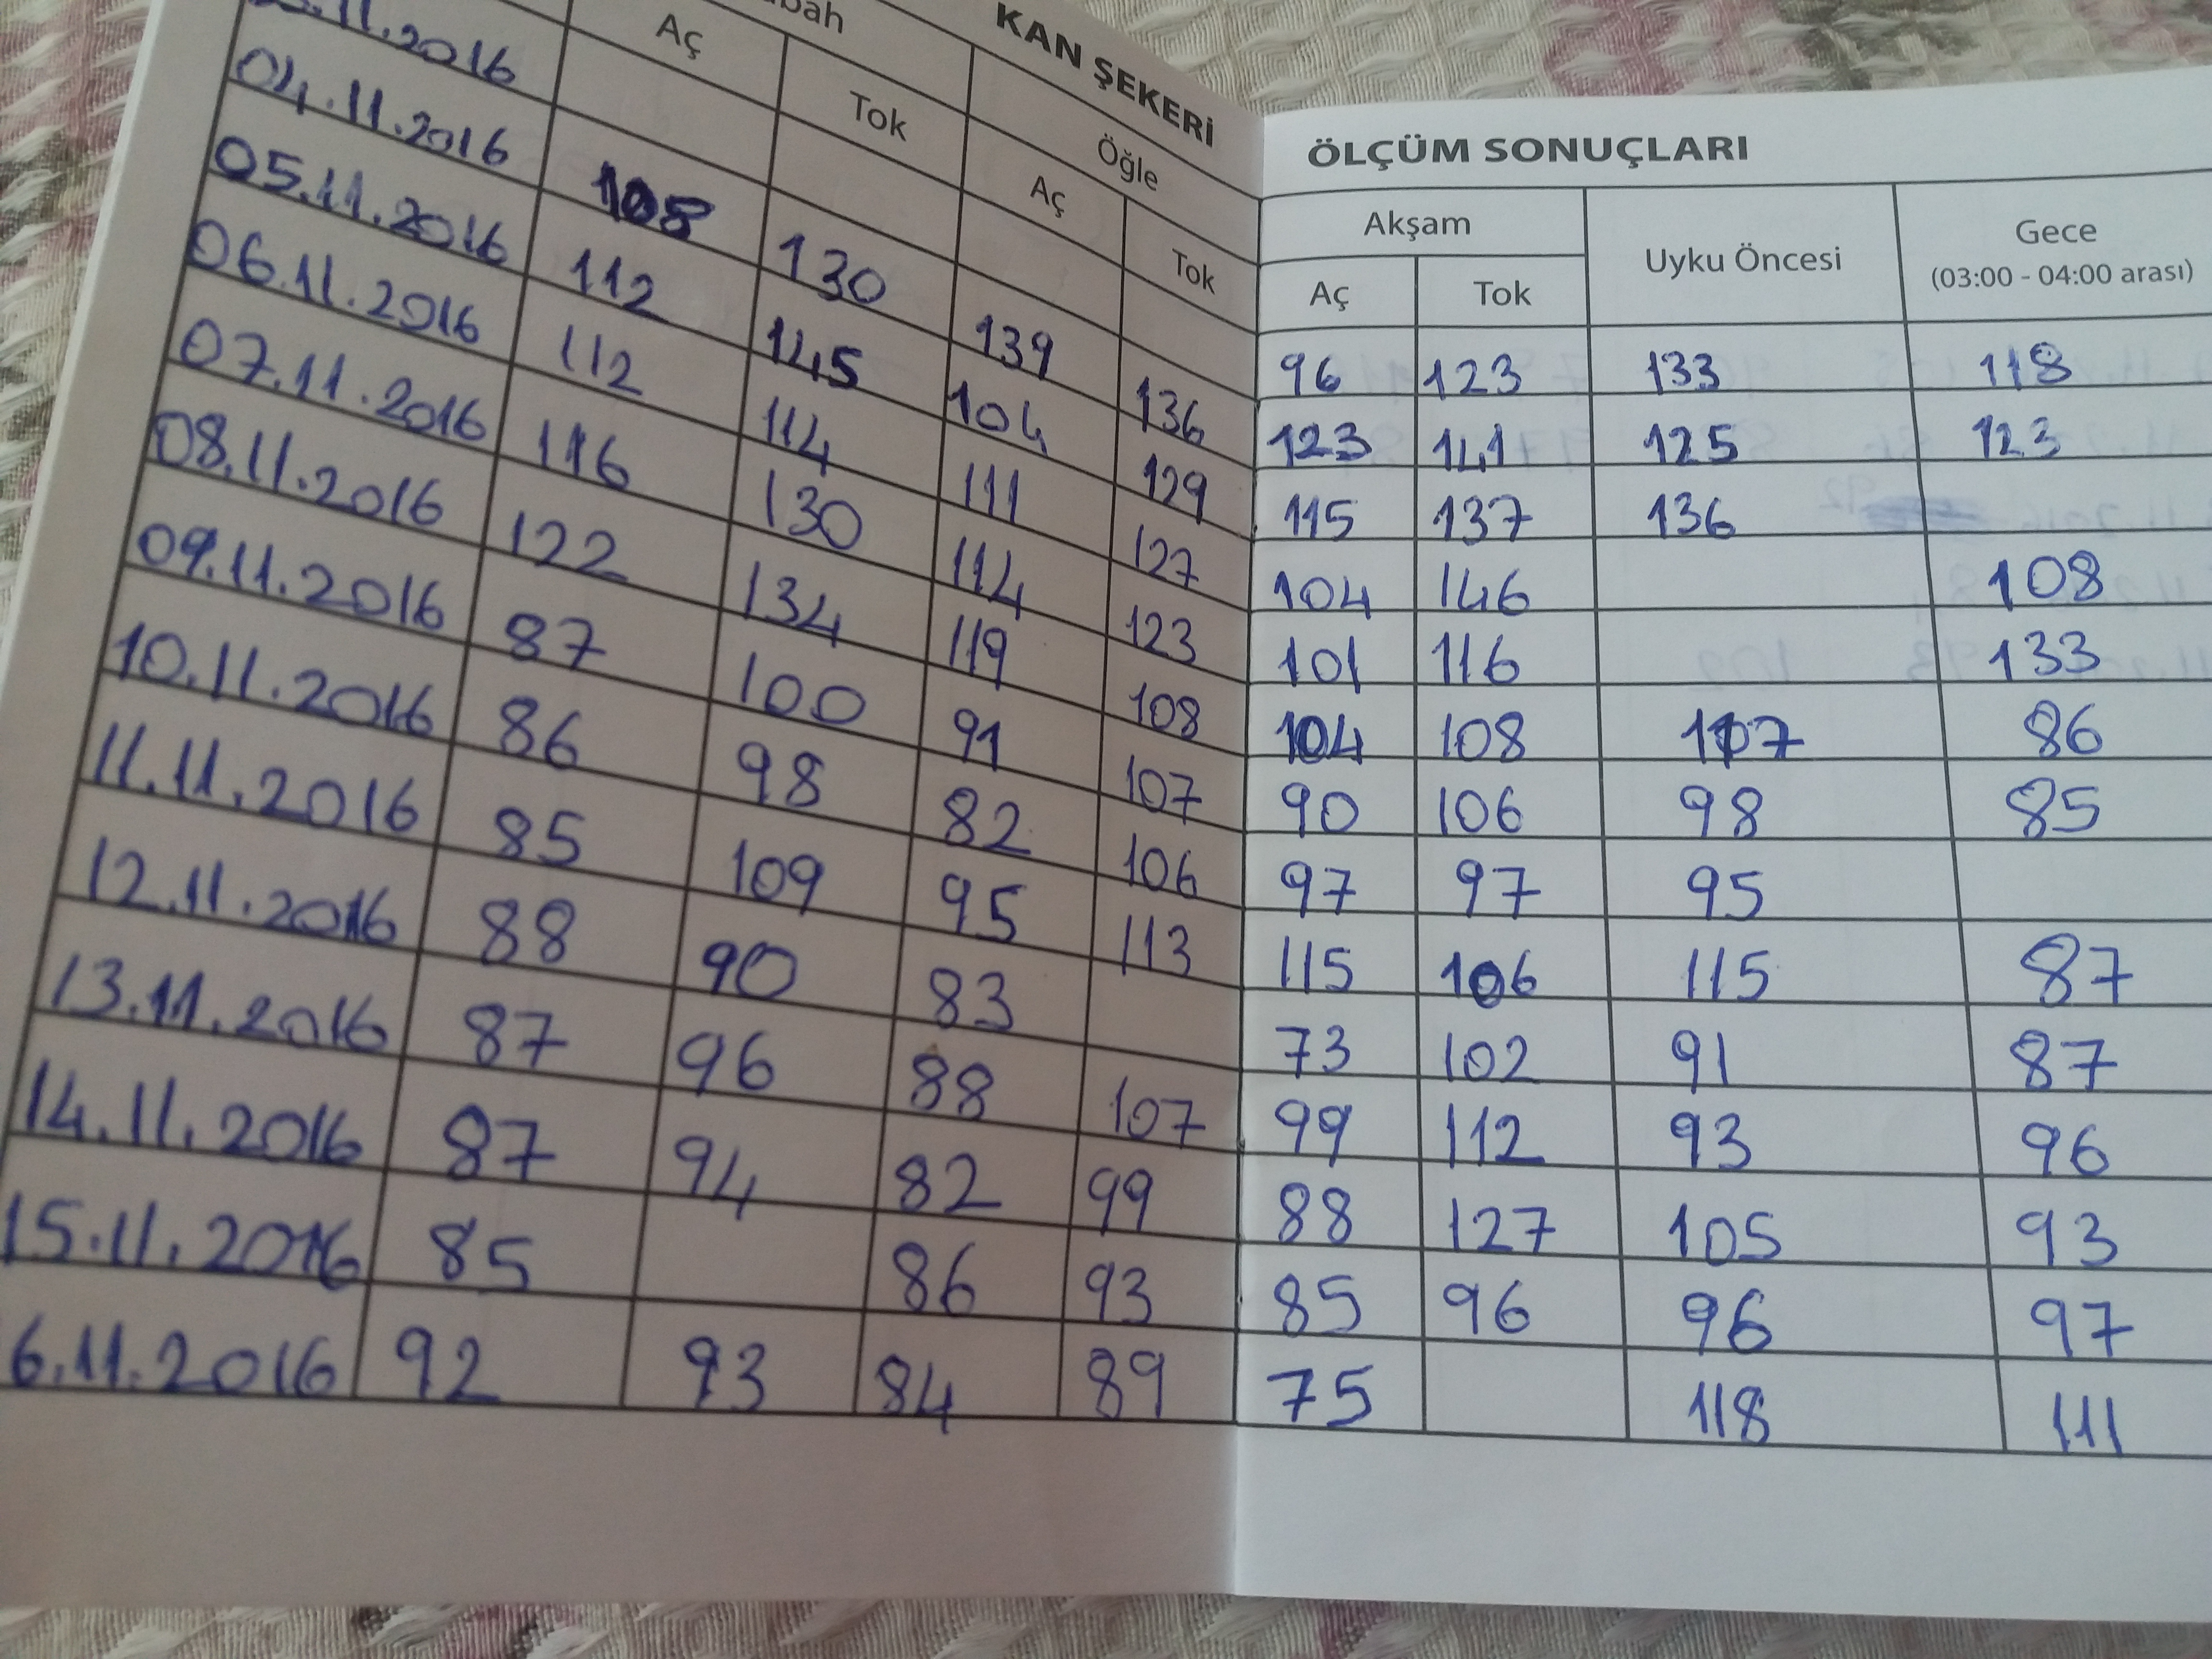 KAN ŞEKERİ ÖLÇÜM SONUÇLARI
Öğle Akşam Uyku Öncesi Gece
Aç Tok Aç Tok Aç Tok (03:00 - 04:00 arası)
.11.2016 96 123 133 118
04.11.2016 130 139 136 123 141 125 123
05.11.2016 112 145 104 129 115 137 136
06.11.2016 112 114 111 127 104 146 108
07.11.2016 116 130 114 123 101 116 133
08.11.2016 122 134 119 108 104 108 107 86
09.11.2016 87 100 91 107 90 106 98 85
10.11.2016 86 98 82 106 97 97 95
11.11.2016 85 109 95 113 115 106 115 87
12.11.2016 88 90 83 73 102 91 87
13.11.2016 87 96 88 107 99 112 93 96
14.11.2016 87 94 82 99 88 127 105 93
15.11.2016 85 86 93 85 96 96 97
6.11.2016 92 93 84 89 75 118 111